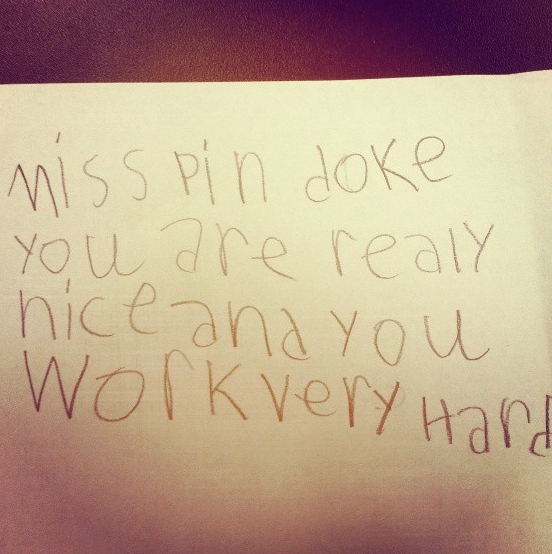 Miss pin doke
you are realy
nice and you
Work very Hard